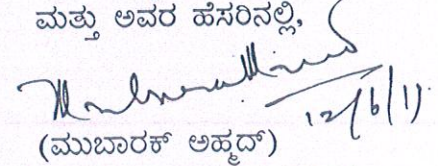 ಮತ್ತು ಅವರ ಹೆಸರಿನಲ್ಲಿ,
12/6/1
(ಮುಬಾರಕ್ ಅಹ್ಮದ್)